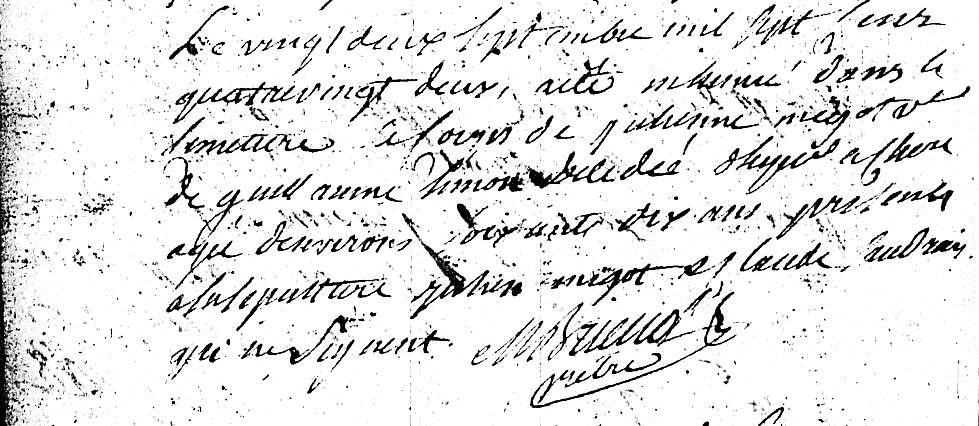 Le vingt deux Septembre mil Sept Cent
quatrevingt deux, a eté inhumé dans le
Cemetiere le Corps de julienne megot ve
de guillaume Simon decedeé
agé denvirons soixante dix ans presents
a la sepulture julien megot et Claude
qui ne Signent
prêtre